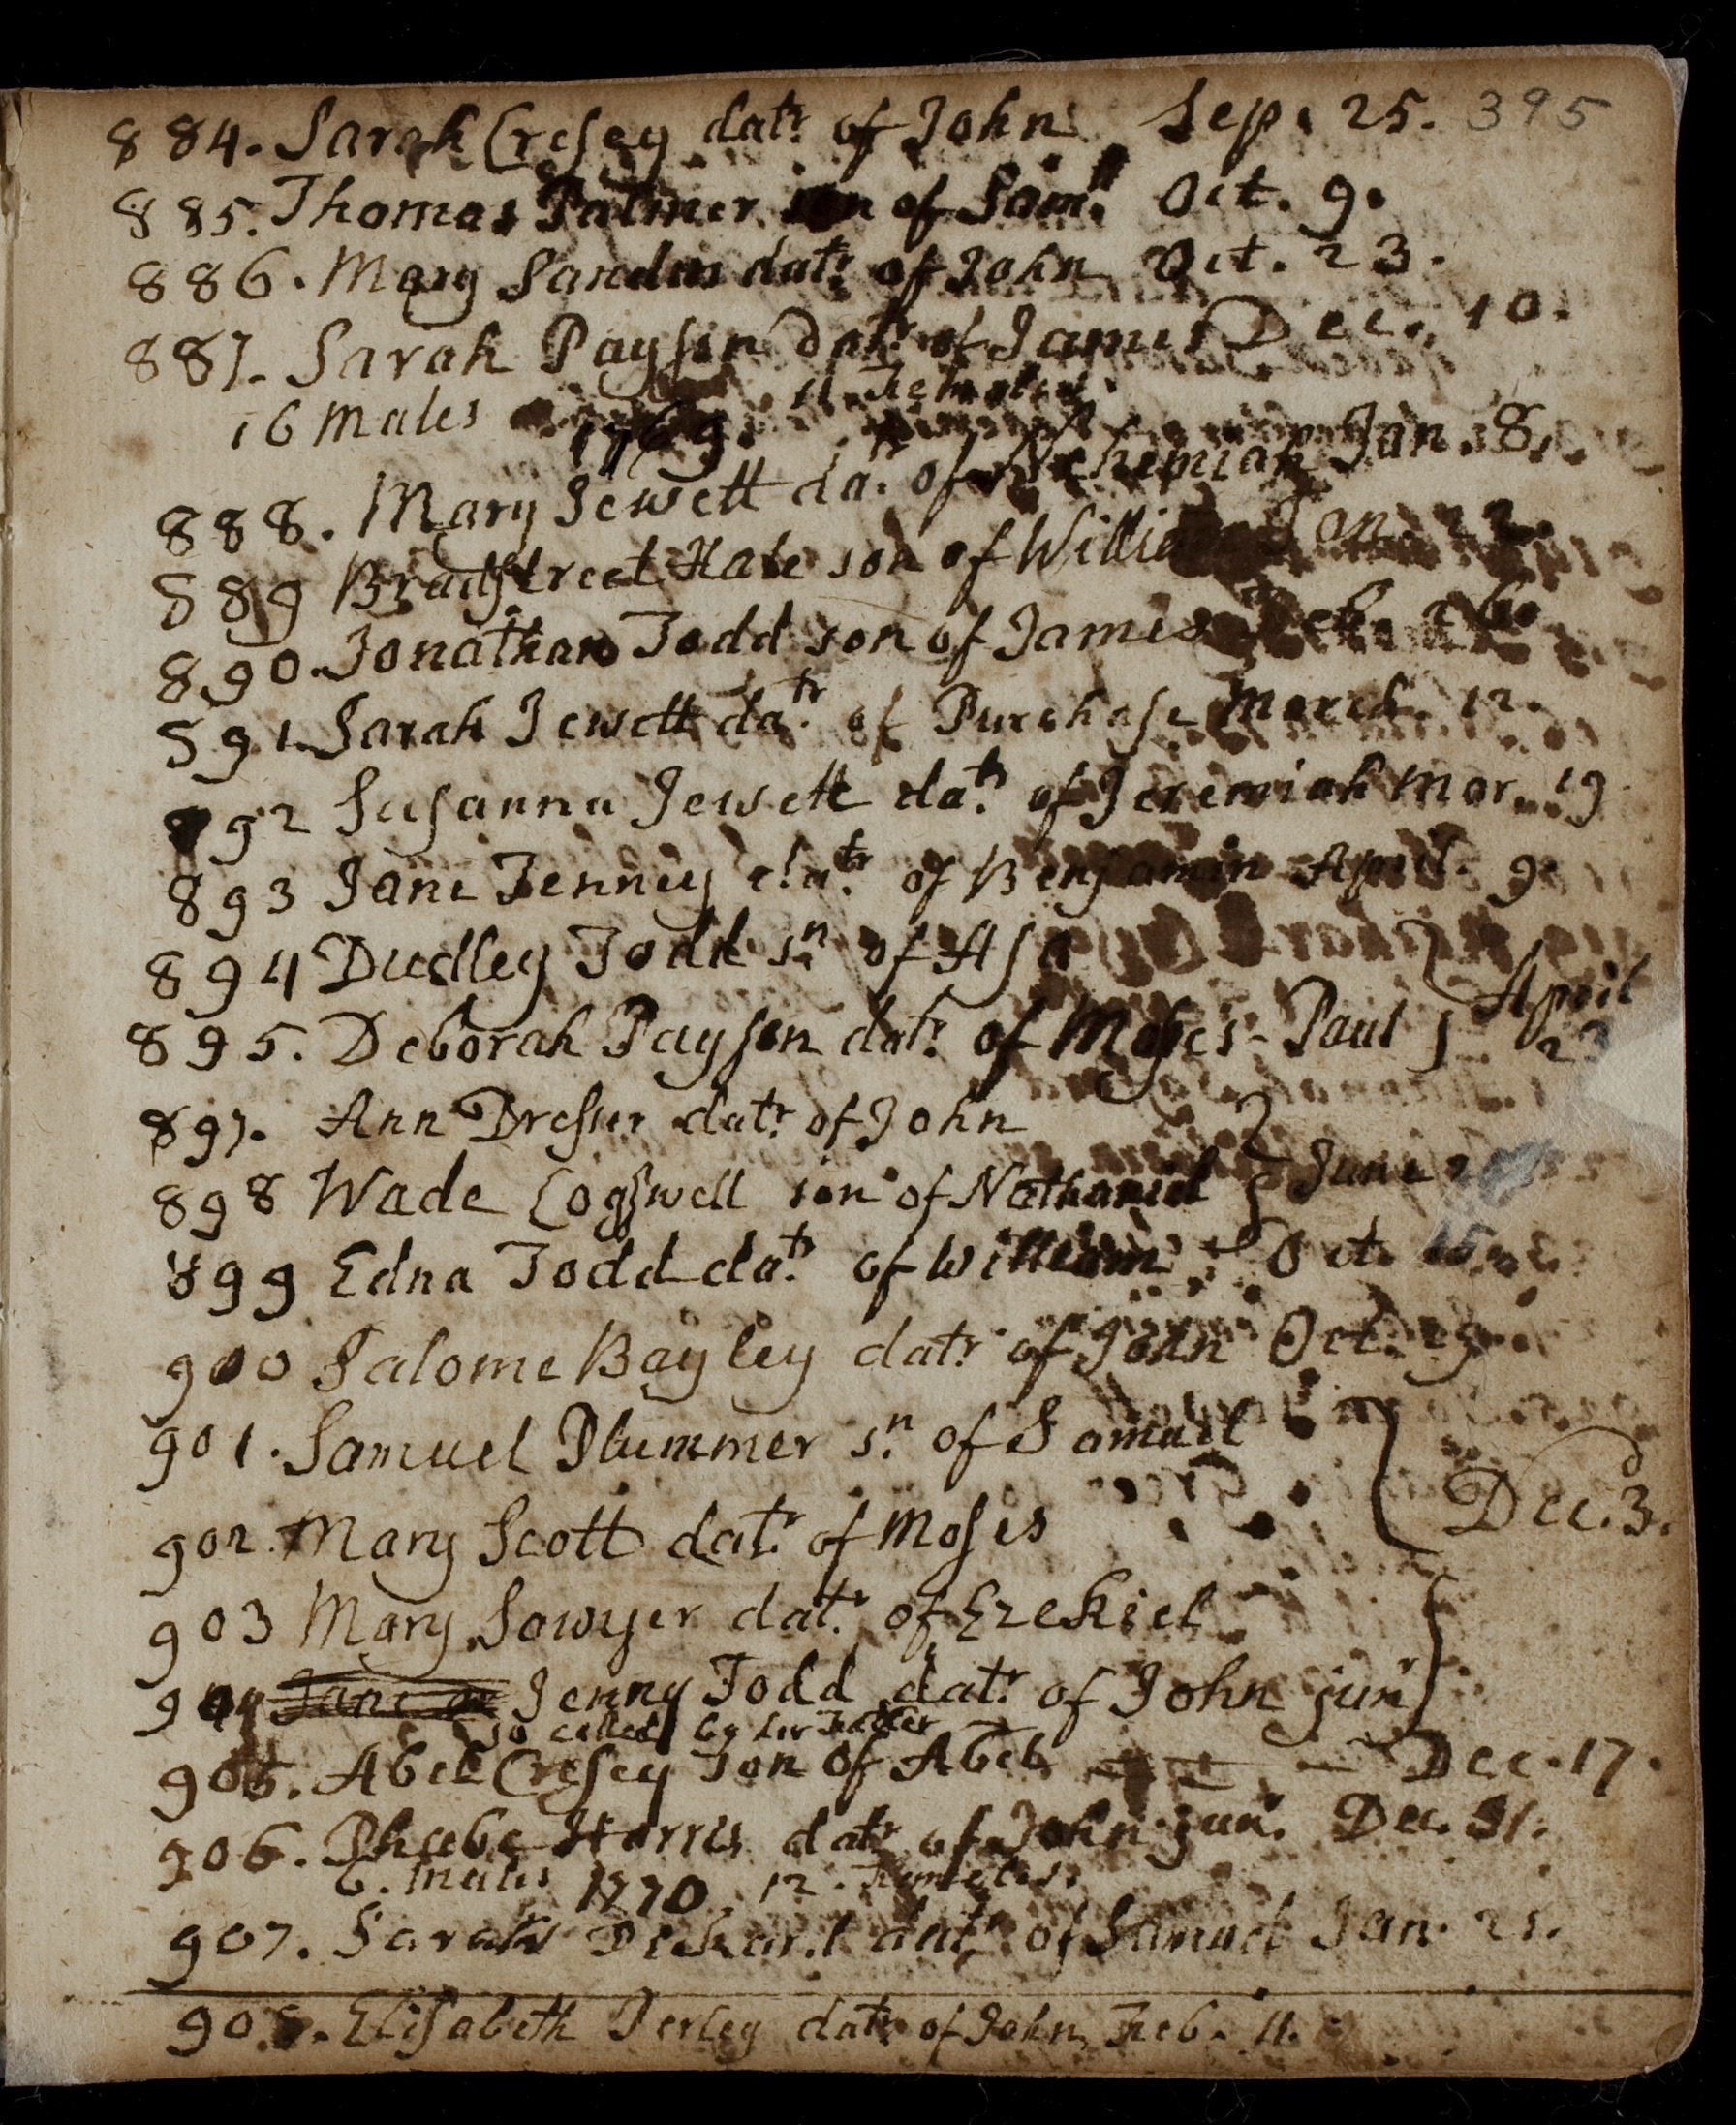 884. Sarah Cresey datr. of John Sep. 25. 395
885. Thomas Palmer son of Samll. Oct. 9.
886. Mary Sanders datr. of John Oct. 23.
887. Sarah Payson datr. of James Dec. 10.
16 Males 11 Females
1769.
888. Mary Jewett da. of Nehemiah Jan. 8.
889 Bradstreet Hale son of William Jan. 22.
890. Jonathan Todd son of James Feb. 26.
891. Sarah Jewett datr. of Purchase March. 12.
892 Susanna Jewett datr. of Jeremiah Mar. 19
893 Jane Tenney datr. of Benjamin April. 9.
894 Dudley Todd sn. of Asa
895. Deborah Payson datr. of Moses-Paul } April 23
897. Ann Dresser datr. of John
898 Wade Cogswell son of Nathaniel } June
899 Edna Todd datr. of William - Oct. 15
900 Salome Bayley datr. of John Oct. 29
901. Samuel Plummer sn. of Samuel
902. Mary Scott datr. of Moses } Dec. 3.
903 Mary Sawyer datr. of Ezekiel
904 Jane or Jenny Todd datr. of John junr }
so called by her Father
905. Abel Cresey Son of Abel - - - Dec. 17.
906. Phebe Harris datr. of John jun. Dec. 31.
6. Males 1770. 12. Females.
907. Sarah Pickard datr. of Samuel Jan. 21.
908. Elisabeth Perley datr. of John Feb. 11.